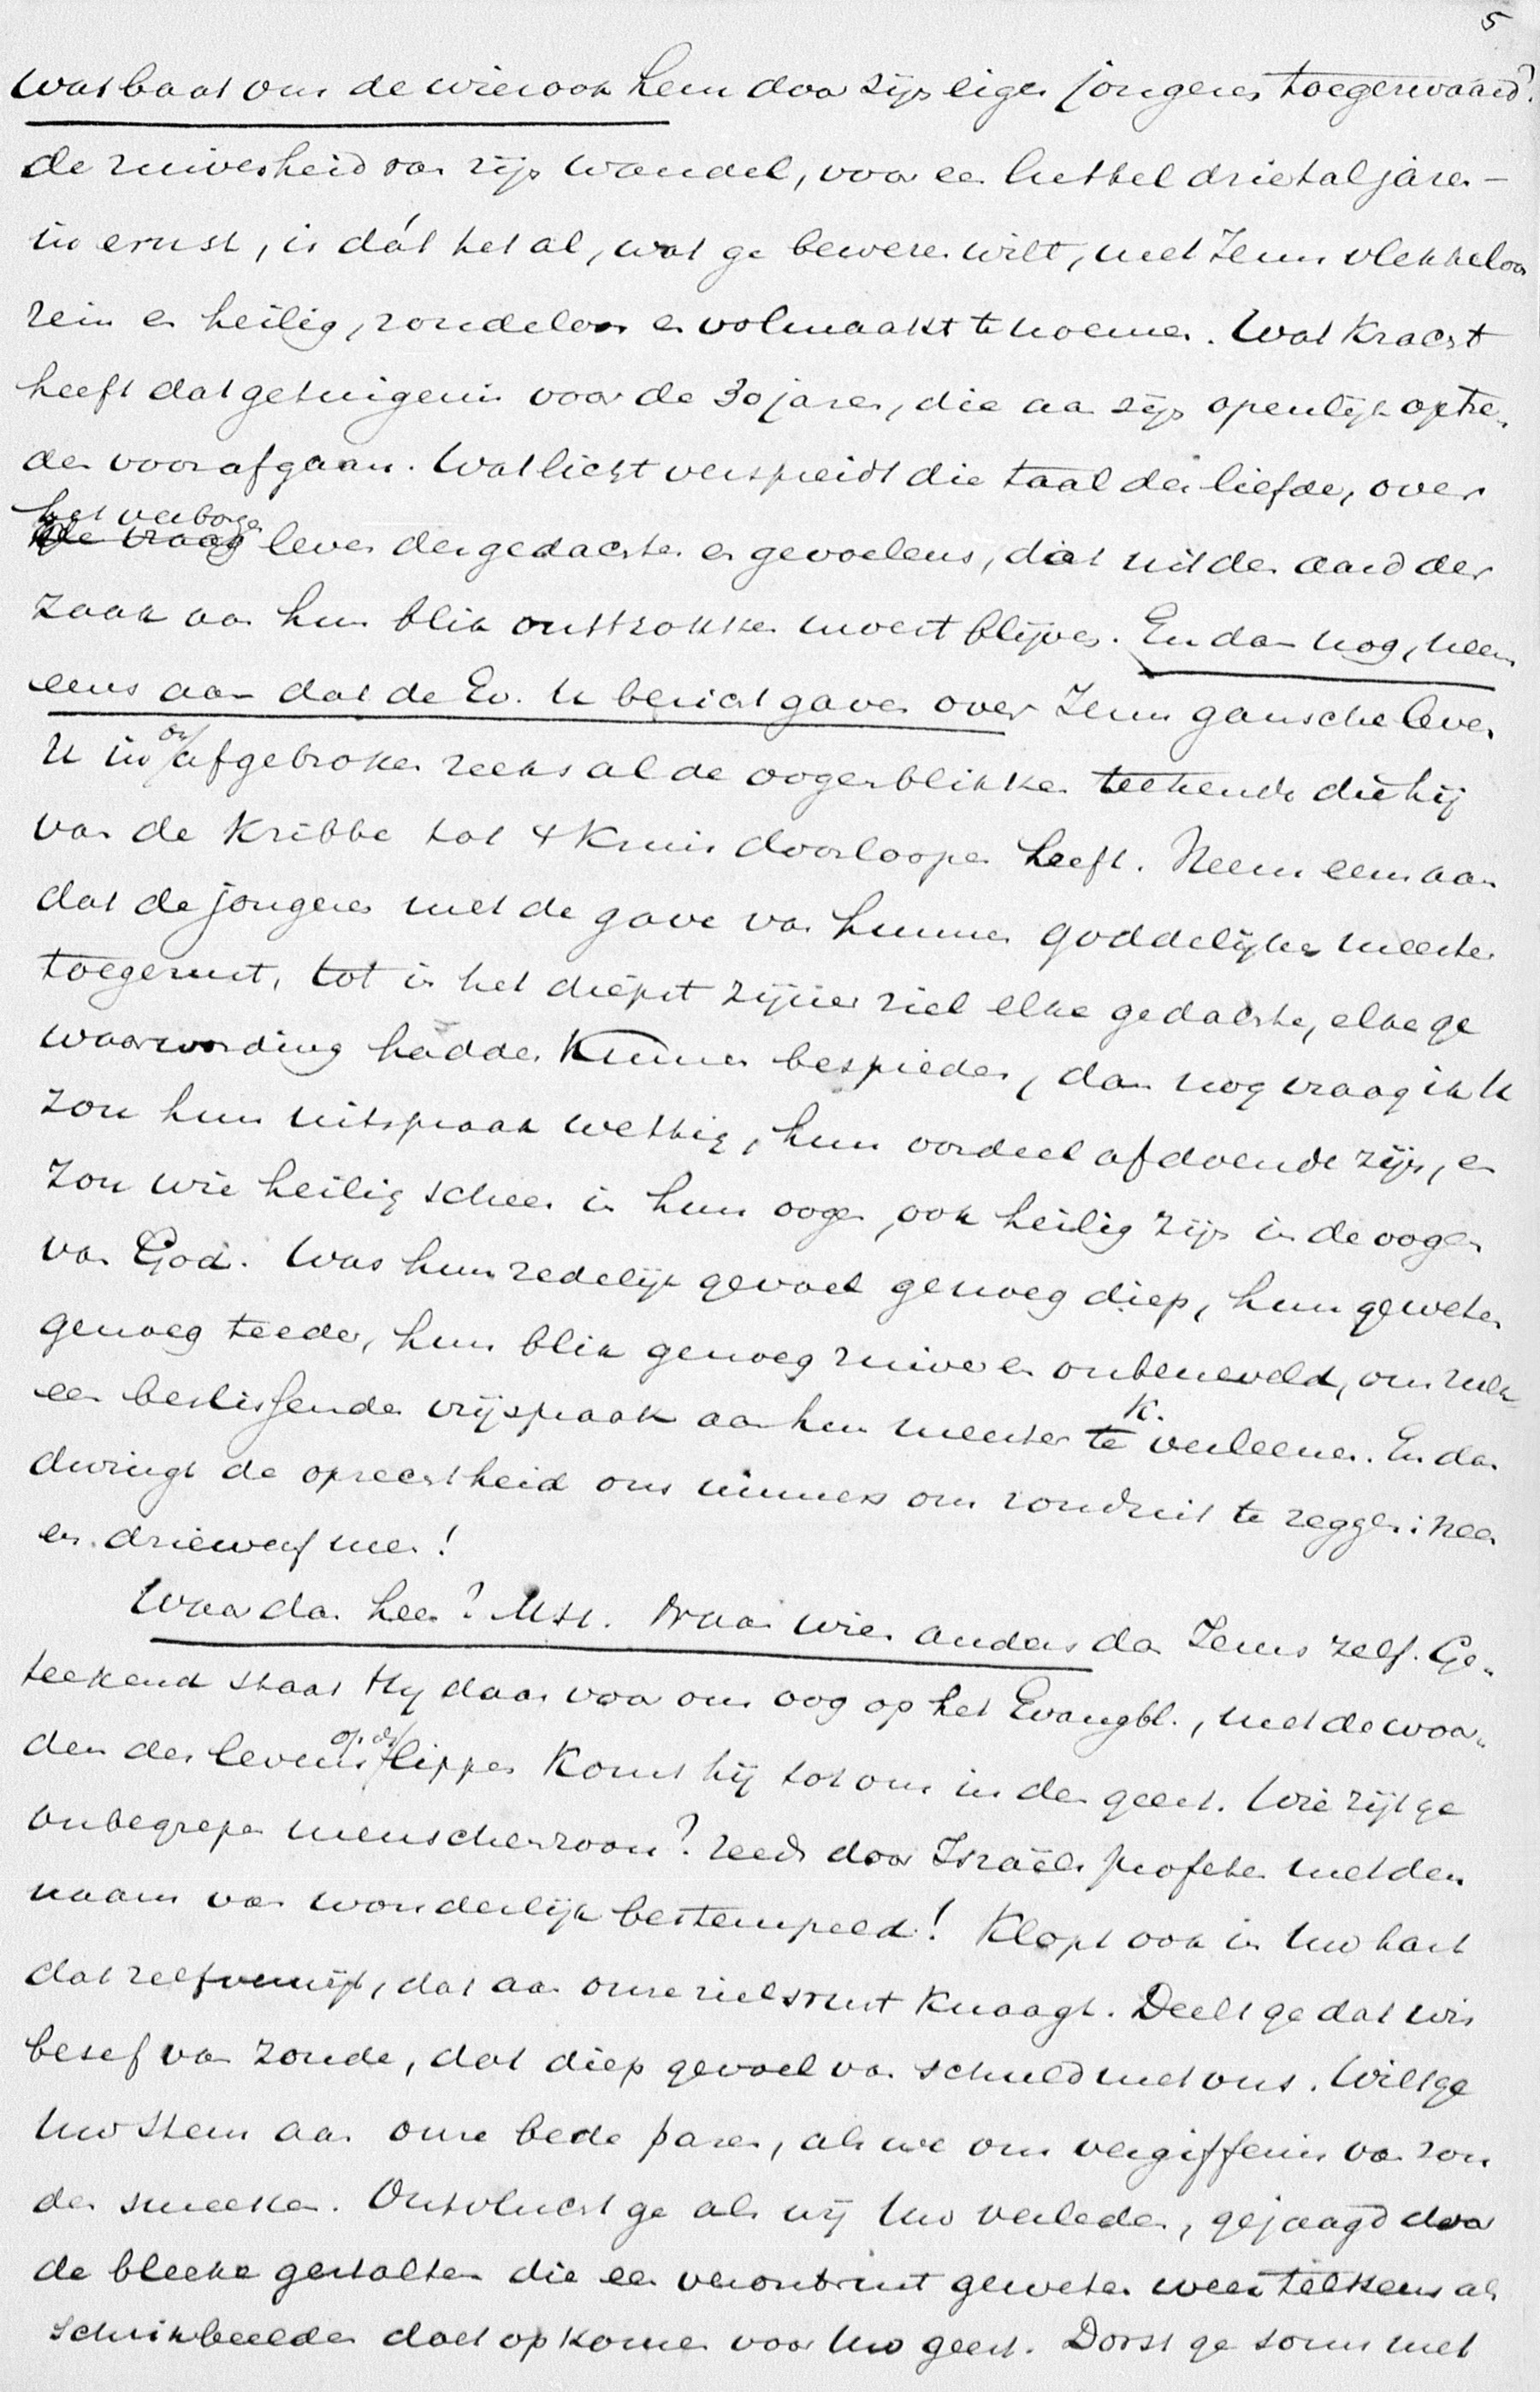 5
Wat baat ons de wierook hem door zijn eigen jongeren toegezwaaid?
de zuiverheid van zijn wandel, voor een luttel drietal jaren –
in ernst, is dát het al, wat ge beweren wilt, met Jezus vlekkeloos
rein en heilig, zondeloos en volmaakt te noemen. Wat kracht
heeft dat getuigenis voor de 30 jaren, die aan zijn openlijk optre-
den voorafgaan. Wat licht verspreidt die taal der liefde, over
het verborgen
de vraag leven der gedachten en gevoelens, dat uit den aard der
zaak aan hun blik onttrokken moest blijven. En dan nog, neem
eens aan dat de Ev. U bericht gaven over Jezus gansche leven
U in onafgebroken reeks al de oogenblikken teekende die hij
van de Kribbe tot 't Kruis doorloopen heeft. Neem eens aan
dat de jongeren met de gave van hunnen goddelijken meester
toegerust, tot in het diepst zijner ziel elke gedachte, elke ge
waarwording hadden kunnen bespieden, dan nog vraag ik U
zou hun uitspraak wettig, hun oordeel afdoende zijn, en
zou wie heilig scheen in hun oogen, ook heilig zijn in de oogen
van God. Was hun zedelijk gevoel genoeg diep, hun geweten
genoeg teeder, hun blik genoeg zuiver en onbeneveld, om zulk
een beslissende vrijspraak aan hun meester te K. verleenen. En dan
dwingt de oprechtheid ons immers om ronduit te zeggen: neen
en driewerf neen!
Waar dan heen? M.H. Naar wien anders dan Jezus zelf. Ge-
teekend staat Hij daar voor ons oog op het Evangbl., met de woor-
den des levens op de lippen komt hij tot ons in den geest. Wie zijt ge
onbegrepen menschenzoon? reeds door Israëls profeten met den
naam van wonderlijk bestempeld! Klopt ook in Uw hart
dat zelfverwijt, dat aan onze zielsrust knaagt. Deelt ge dat
besef van zonde, dat diep gevoel van schuld met ons. Wilt ge
Uw stem aan onze bede paren, als we om vergiffenis van zon
den smeeken. Ontvlucht ge als wij Uw verleden, gejaagd door
de bleeke gestalten die een verontrust geweten weer telkens als
schrikbeelden doet opkomen voor Uw geest. Dorst ge soms met